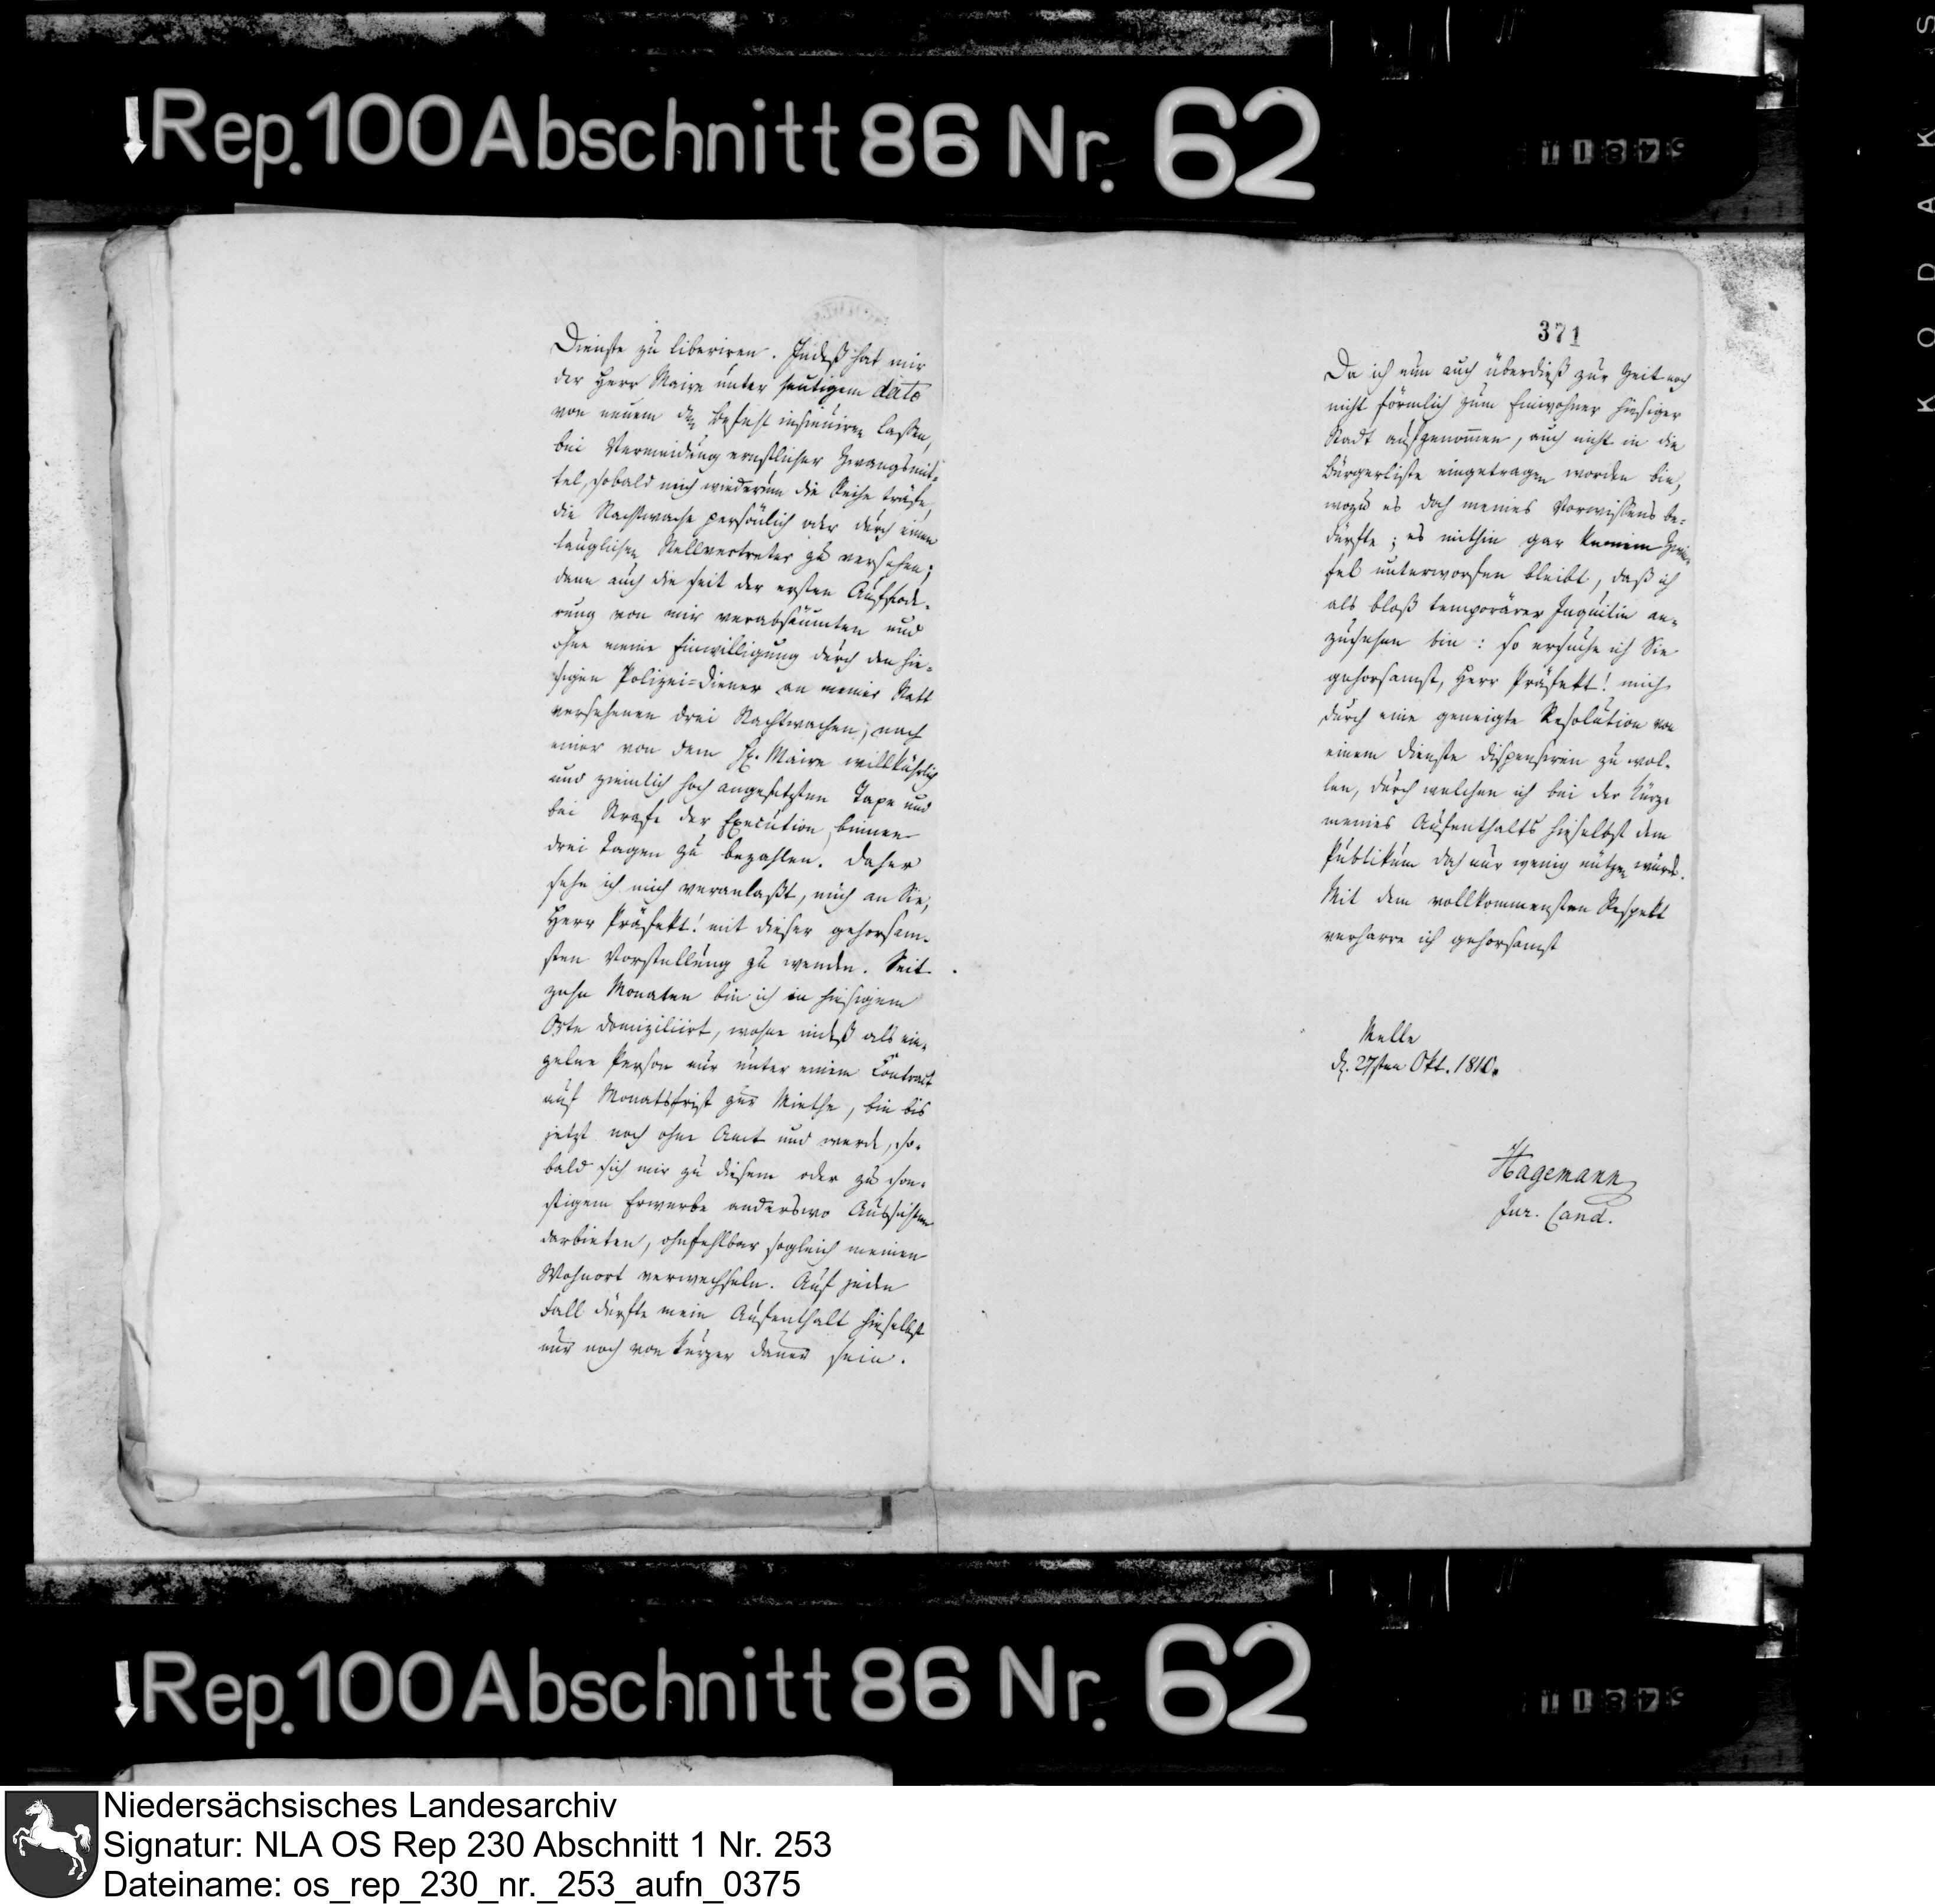 Rep. 100 Abschnitt 86 Nr. 62
Dienste zu liberiren. Indeß hat mir
der Herr Maire unter heutigem dato
von neuem den Befehl insinuiren lassen,
bei Vermeidung ernstlicher Zwangsmit-
tel, sobald mich wiederum die Reihe träfe,
die Nachtwache persönlich oder durch einen
tauglichen Stellvertreter zu versehen;
dann auch die seit der ersten Auffode-
rung von mir verabsäumten und
ohne meine Einwilligung durch den hie-
sigen Polizei-Diener an meiner Statt
versehenen drei Nachtwachen, nach
einer von dem H. Maire willkührlich
und ziemlich hoch angesetzten Taxe und
bei Strafe der Execution, binnen
drei Tagen zu bezahlen. Daher
sehe ich mich veranlaßt, mich an Sie,
Herr Präfekt! mit dieser gehorsam-
sten Vorstellung zu wenden. Seit
zehn Monaten bin ich in hiesigem
Orte domiziliirt, wohne indeß als ein-
zelne Person nur unter einem Contract
auf Monatsfrist zur Miethe, bin bis
jetzt noch ohne Amt und werde, so-
bald sich mir zu diesem oder zu son-
stigem Erwerbe anderswo Aussichten
darbieten, ohnfehlbar sogleich meinen
Wohnort verwechseln. Auf jeden
Fall dürfte mein Aufenthalt hieselbst
nur noch von kurzer Dauer sein.
371
Da ich nun auch überdieß zur Zeit noch
nicht förmlich zum Einwohner hiesiger
Stadt aufgenom̅en, auch nicht in die
Bürgerliste eingetragen worden bin,
wozu es doch meines Vorwissens be-
dürfte; es mithin gar keinem Zwei-
fel unterworfen bleibt, daß ich
als bloß temporärer Inquilin an-
zusehen bin: so ersuche ich Sie
gehorsamst, Herr Präfekt! mich
durch eine geneigte Resolution von
einem Dienste dispensiren zu wol-
len, durch welchen ich bei der Kürze
meines Aufenthalts hieselbst dem
Publikum doch nur wenig nützen würde.
Mit dem vollkommensten Respekt
verharre ich gehorsamst
Melle
d. 27sten Okt. 1810.
Hagemann
Jur. Cand.
Rep. 100 Abschnitt 86 Nr. 62
KODAK S
Niedersächsisches Landesarchiv
Signatur: NLA OS Rep 230 Abschnitt 1 Nr. 253
Dateiname: os_rep_230_nr._253_aufn_0375